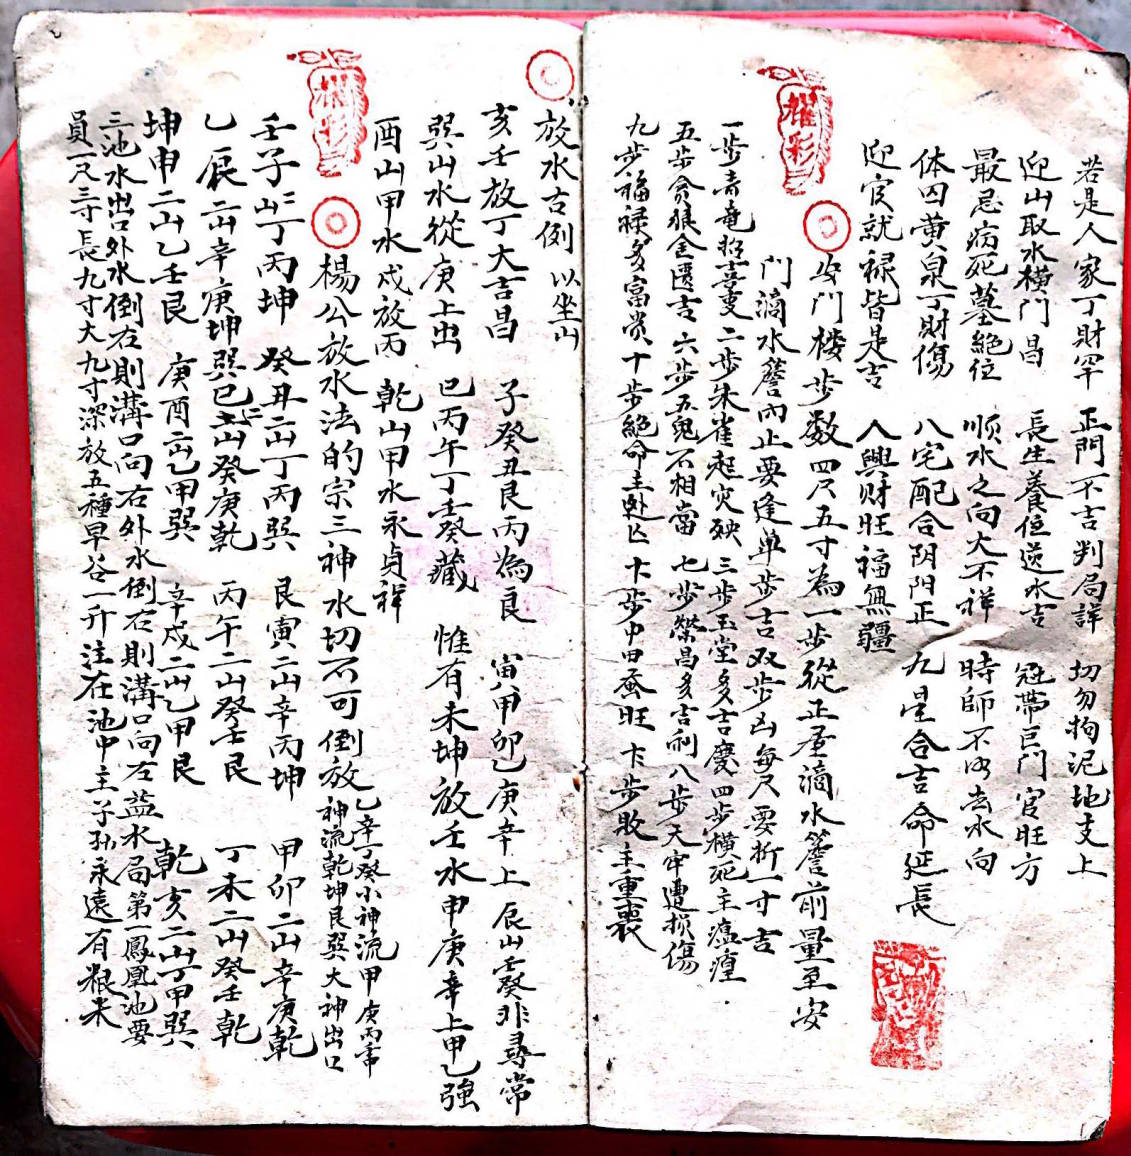 若是人家丁財罕 正門不吉判局詳 切勿拘泥地支上
迎山取水橫门昌 長生養位逆水吉 冠帶巨门官旺方
最忌病死墓絕位 顺水之向大不祥 時師不 去水向
体囚黄泉丁財傷 八宅配合阴阳正 九星合吉命延長
迎官就禄皆是吉 人興财旺福無疆
耀彩
安门楼步数四尺五寸為一步從正 滴水簷前量至安
门滴水簷內止要逢单步吉双步凶每尺要折一寸吉
一步青竜招喜事 二步朱雀起灾殃 三步玉堂多吉慶 四步橫死主瘟瘟
五步贪狼金匮吉 六步五鬼不相當 七步榮昌多吉利 八步天牢遭损傷
九步福禄多富贵 十步絕命主 亡 步中田蚕旺 步败主重喪
放水古例 以坐山
亥壬放丁大吉昌 子癸丑艮丙為良 寅甲卯乙庚辛上 辰山壬癸非尋常
巽山水從庚上出 巳丙午丁壬癸藏 惟有未坤放壬水 申庚辛上甲乙強
酉山甲水戍放丙 乾山甲水永贞祥
耀彩
楊公放水法的宗三神水切不可倒放 乙辛丁癸小神流甲庚丙壬中神流乾坤艮巽大神出口
壬子二山丁丙坤 癸丑二山丁丙巽 艮寅二山辛丙坤 甲卯二山辛庚乾
乙辰二山辛庚坤 巽巳二山癸庚乾 丙午二山癸壬艮 丁未二山癸壬乾
坤申二山乙壬艮 庚酉二山乙甲巽 辛戍二山乙甲艮 乾亥二山丁甲巽
三池水出口外水倒左則溝口向右外水倒右則溝口向左益水局第一鳳凰池要
員一尺三寸長九寸大九寸深放五種早谷一升注在池中主子孙永遠有粮米